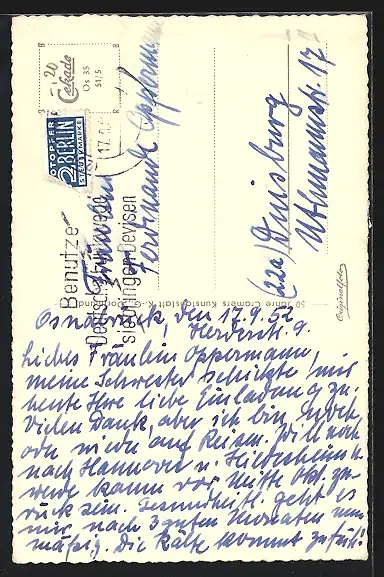 20
Cekade
Os 35
51/5
NOTOPFER
2 BERLIN
STEUERMARKE
17.9.
Benutze
Deutsche Seehäfen
sie bringen Devisen
Fräulein
Ferdinande Oppermann
(22a) Duisburg
Uhlmannstr. 17
50 Jahre Cramers Kunstanstalt K.-G., Dortmund
Originalfoto
Osnabrück, den 17.9.52
Herderstr. 9.
Liebes Fräulein Oppermann,
meine Schwester schickte mir
heute Ihre liebe Einladung zu.
Vielen Dank, aber ich bin
oder wieder auf Reisen. Will noch
nach Hannover u. Hildesheim u.
werde kaum vor Mitte Okt. zu-
rück sein. Gesundheitl. geht es
mir nach 3 guten Monaten nur
mäßig. Die Kälte kommt zu früh!